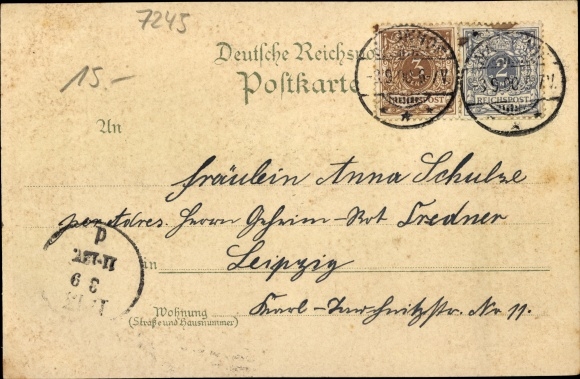 7245
15.-
Deutsche Reichspost
Postkarte
3
REICHSPOST
2
REICHSPOST
An
Fräulein Anna Schulze
per Adres. Herrn Geheim-Rot Tredner
in Leipzig
Wohnung
(Straße und Hausnummer)
Karl-Tauchnitzstr. No 11.
3 9